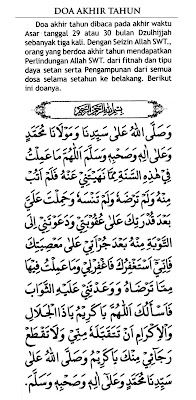 DOA AKHIR TAHUN
Doa akhir tahun dibaca pada akhir waktu
Asar tanggal 29 atau 30 bulan Dzulhijjah
sebanyak tiga kali. Dengan Seizin Allah SWT.,
orang yang berdoa akhir tahun mendapatkan
Perlindungan Allah SWT. dari fitnah dan tipu
daya setan serta Pengampunan dari semua
dosa selama setahun ke belakang. Berikut
ini doanya.
بِسْمِ اللهِ الرَّحْمٰنِ الرَّحِيْمِ
وَصَلَّى اللهُ عَلَى سَيِّدِنَا وَمَوْلَانَا مُحَمَّدٍ
وَعَلَى اٰلِهِ وَصَحْبِهِ وَسَلَّمَ. اَللّٰهُمَّ مَا عَمِلْتُ
فِي هٰذِهِ السَّنَةِ مِمَّا نَهَيْتَنِيْ عَنْهُ فَلَمْ اَتُبْ
مِنْهُ وَلَمْ تَرْضَهُ وَلَمْ تَنْسَهُ وَحَمِلْتَ عَلَيَّ
بَعْدَ قُدْرَتِكَ عَلَى عُقُوْبَتِيْ وَدَعَوْتَنِيْ اِلَى
التَّوْبَةِ مِنْهُ بَعْدَ جُرْاَتِيْ عَلَى مَعْصِيَتِكَ
فَاِنِّيْ اَسْتَغْفِرُكَ فَاغْفِرْلِيْ وَمَا عَمِلْتُ فِيْهَا
مِمَّا تَرْضَاهُ وَوَعَدْتَنِيْ عَلَيْهِ الثَّوَابَ
فَاَسْأَلُكَ اَللّٰهُمَّ يَا كَرِيْمُ يَا ذَا الْجَلَالِ
وَالْاِكْرَامِ اَنْ تَتَقَبَّلَهُ مِنِّيْ وَلَا تَقْطَعْ
رَجَائِيْ مِنْكَ يَا كَرِيْمُ وَصَلَّى اللهُ عَلَى
سَيِّدِنَا مُحَمَّدٍ وَعَلَى اٰلِهِ وَصَحْبِهِ وَسَلَّمَ.